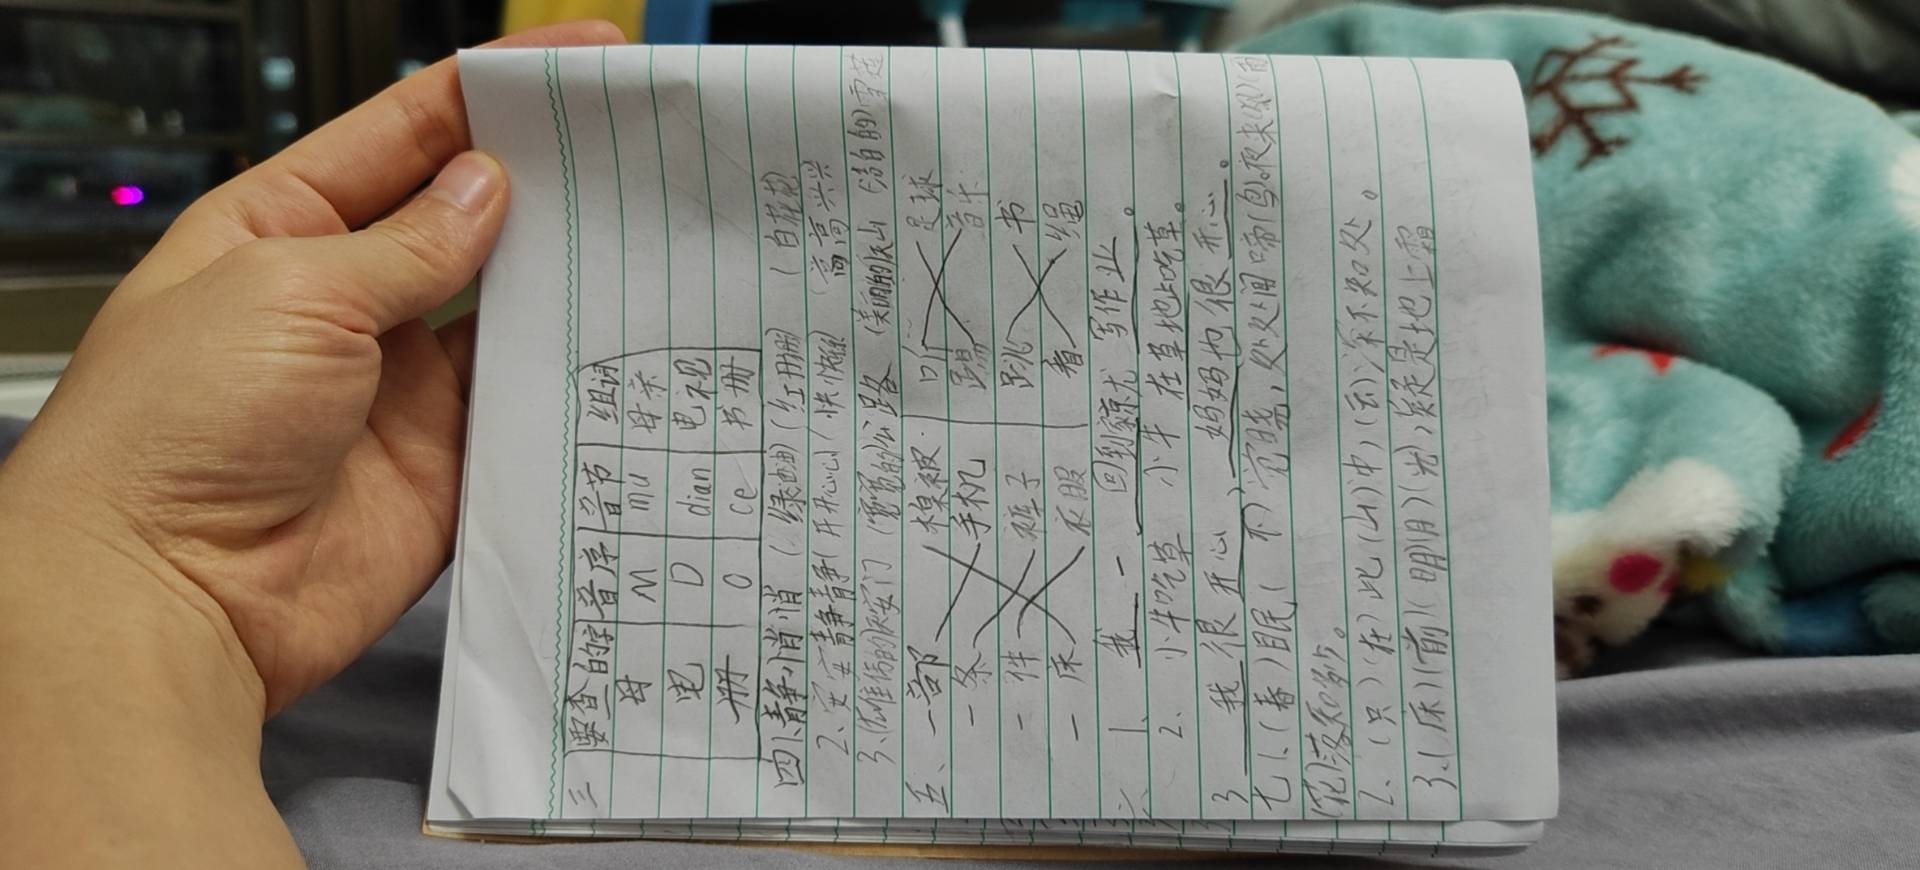 三
要查的字 音序 音节 组词
母 M mu 母亲
电 D dian 电视
册 O ce 书册
四、静悄悄 (绿油油) (红彤彤) (白花花)
2、安安静静 (开开心心) (快快乐乐) (高高兴兴
3、雄伟的天安门 (宽宽的)公路 (美丽的)火山 (洁白的)雪莲
五、一部 棉被 听 足球
一条 手机 踢 音乐
一件 裤子 跳 书
一床 衣服 看 绳
1、我一 回到家尤 写作业。
2、小牛吃草 小牛 在草地上吃草。
3 我很开心 妈妈也很开心。
七、1、(春)眠(不)觉晓,处处闻啼(鸟)。夜来风(雨
(花)落知多少。
2、(只)(在)此(山)中,(云)深不知处。
3、(床)(前)(明)(月)(光),疑是地上霜